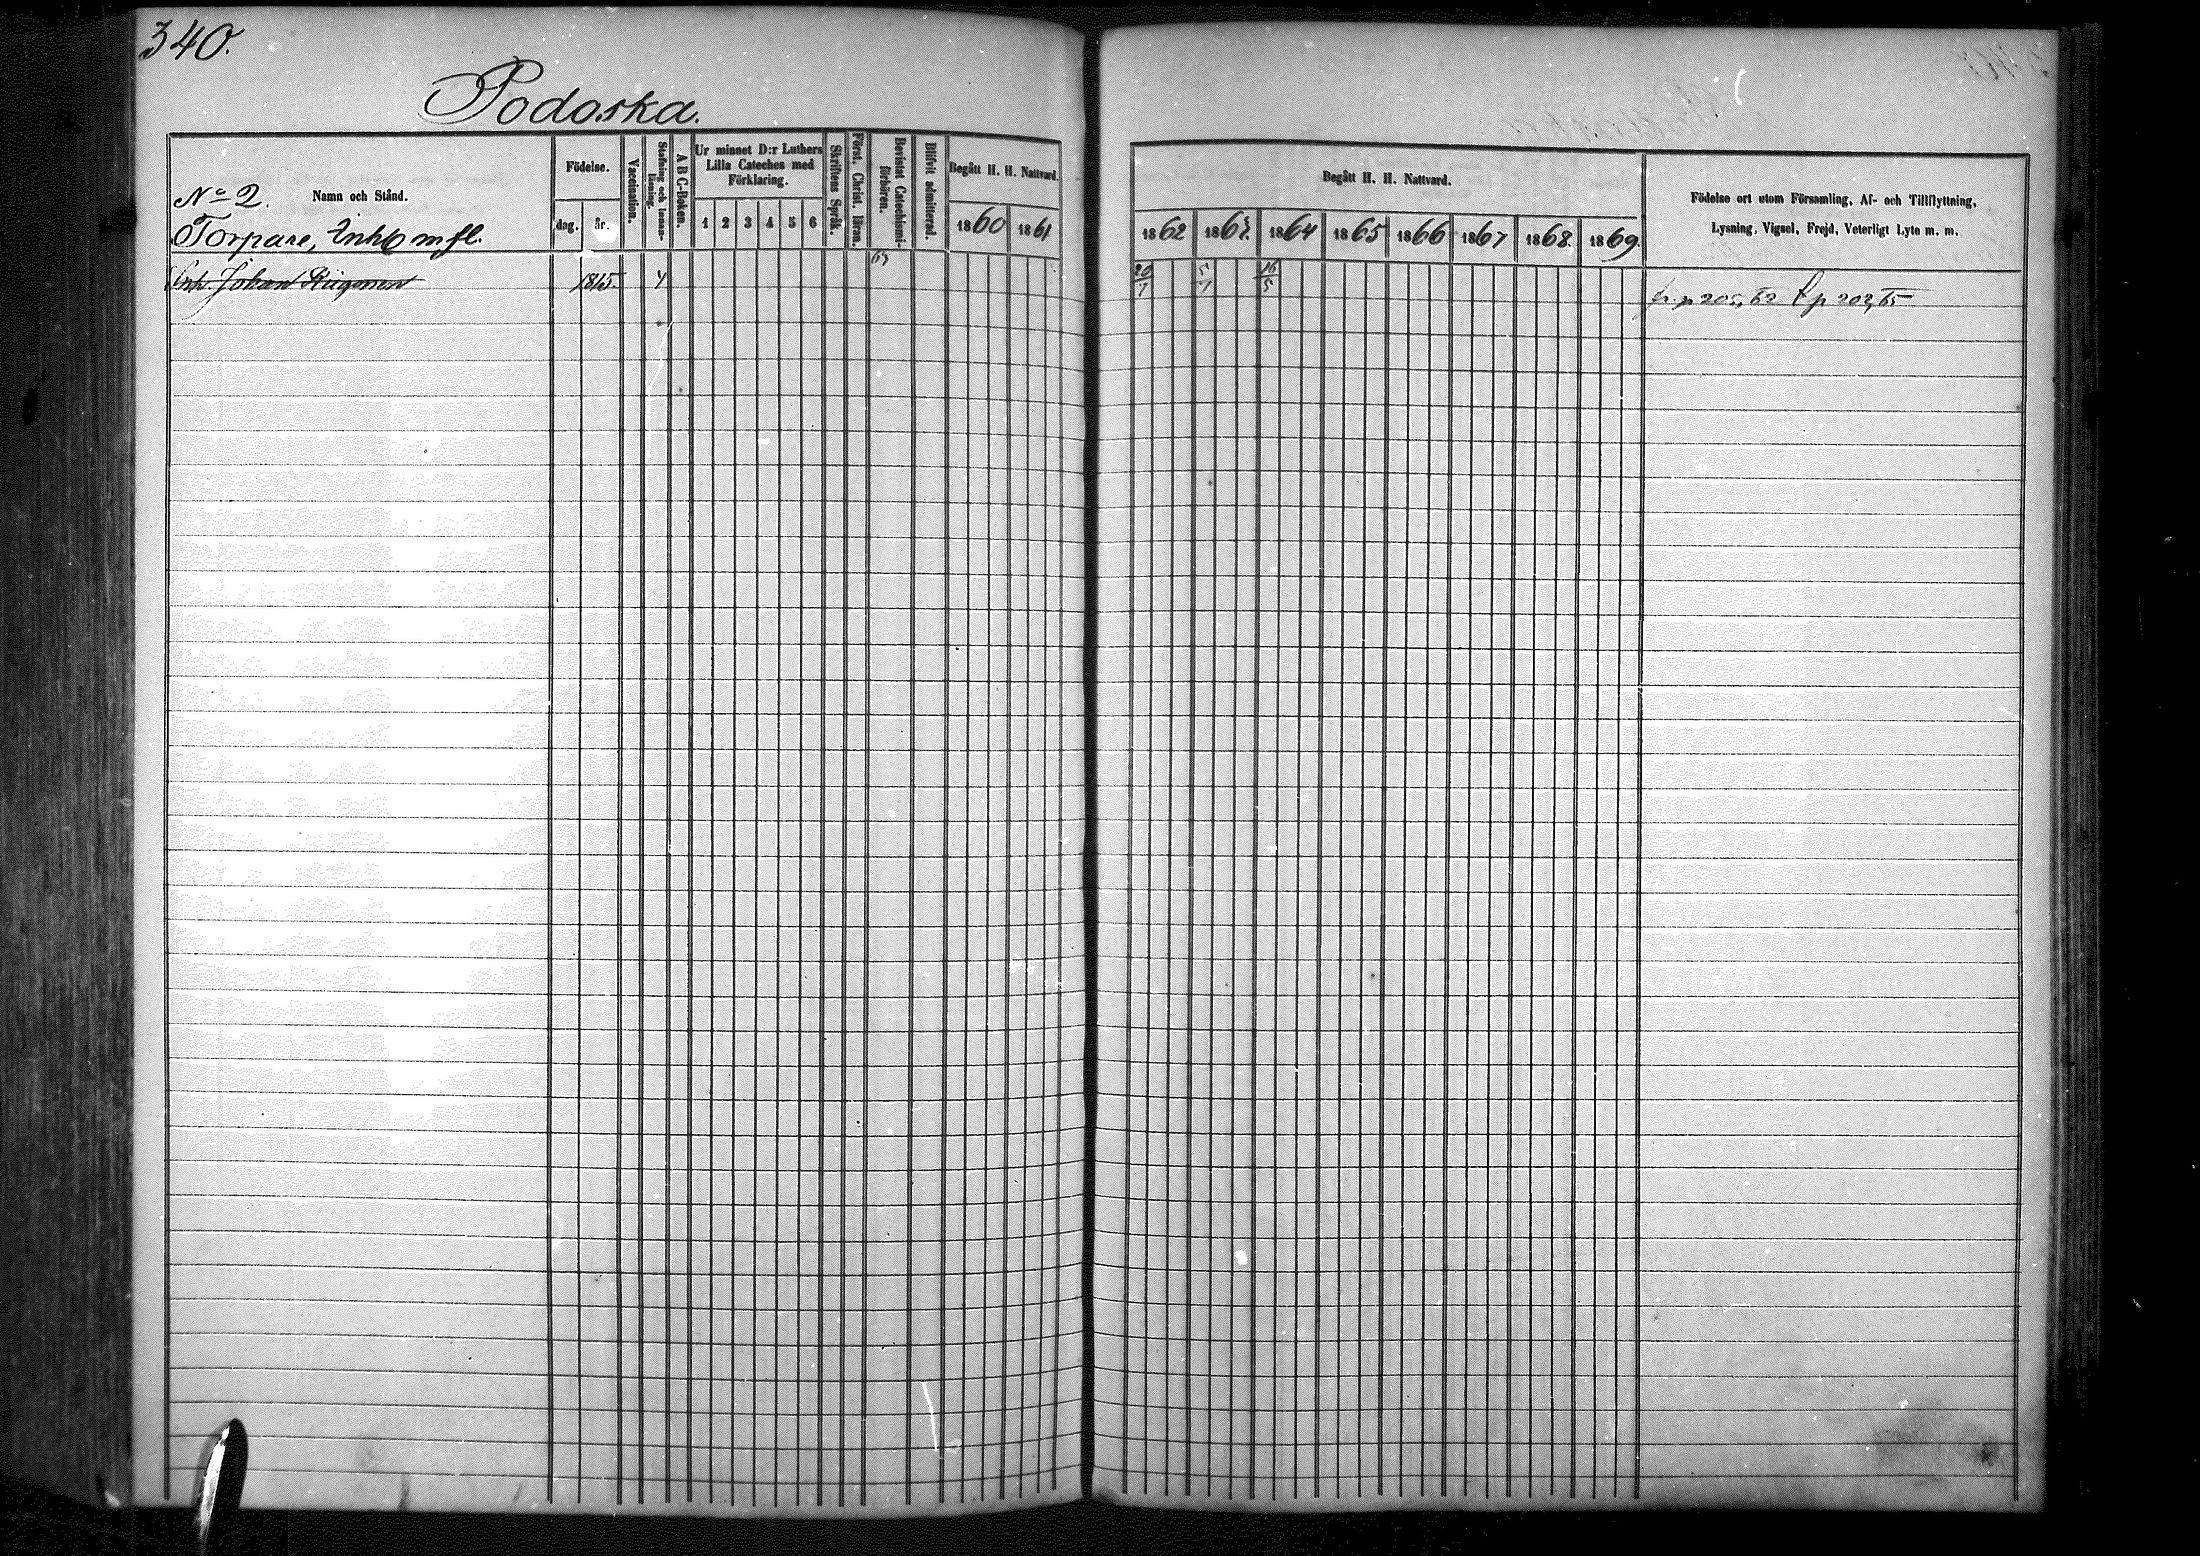 340.
Podoska.
No 2.
Namn och Stånd.
Torpare, Inh. m fl.
Födelse.
dag.
år.
Vaccination.
Stafning och innan-läsning.
A B C-Boken.
Ur minnet D:r Luthers
Lilla Cateches med
Förklaring.
1 2 3 4 5 6
Skriftens Språk.
Först. Christ. läran.
Bevistat Catechismi-förhören.
Blifvit admitterad.
Begått H. H. Nattvard.
1860 1861
Begått H. H. Nattvard.
1862 1863. 1864 1865 1866 1867 1868. 1869.
Födelse ort utom Församling, Af- och Tillflyttning,
Lysning, Vigsel, Frejd, Veterligt Lyte m. m.
Inh. Johan 1815. 20/1 5/1 16/5 fr. p 205, 62 p 202, 65